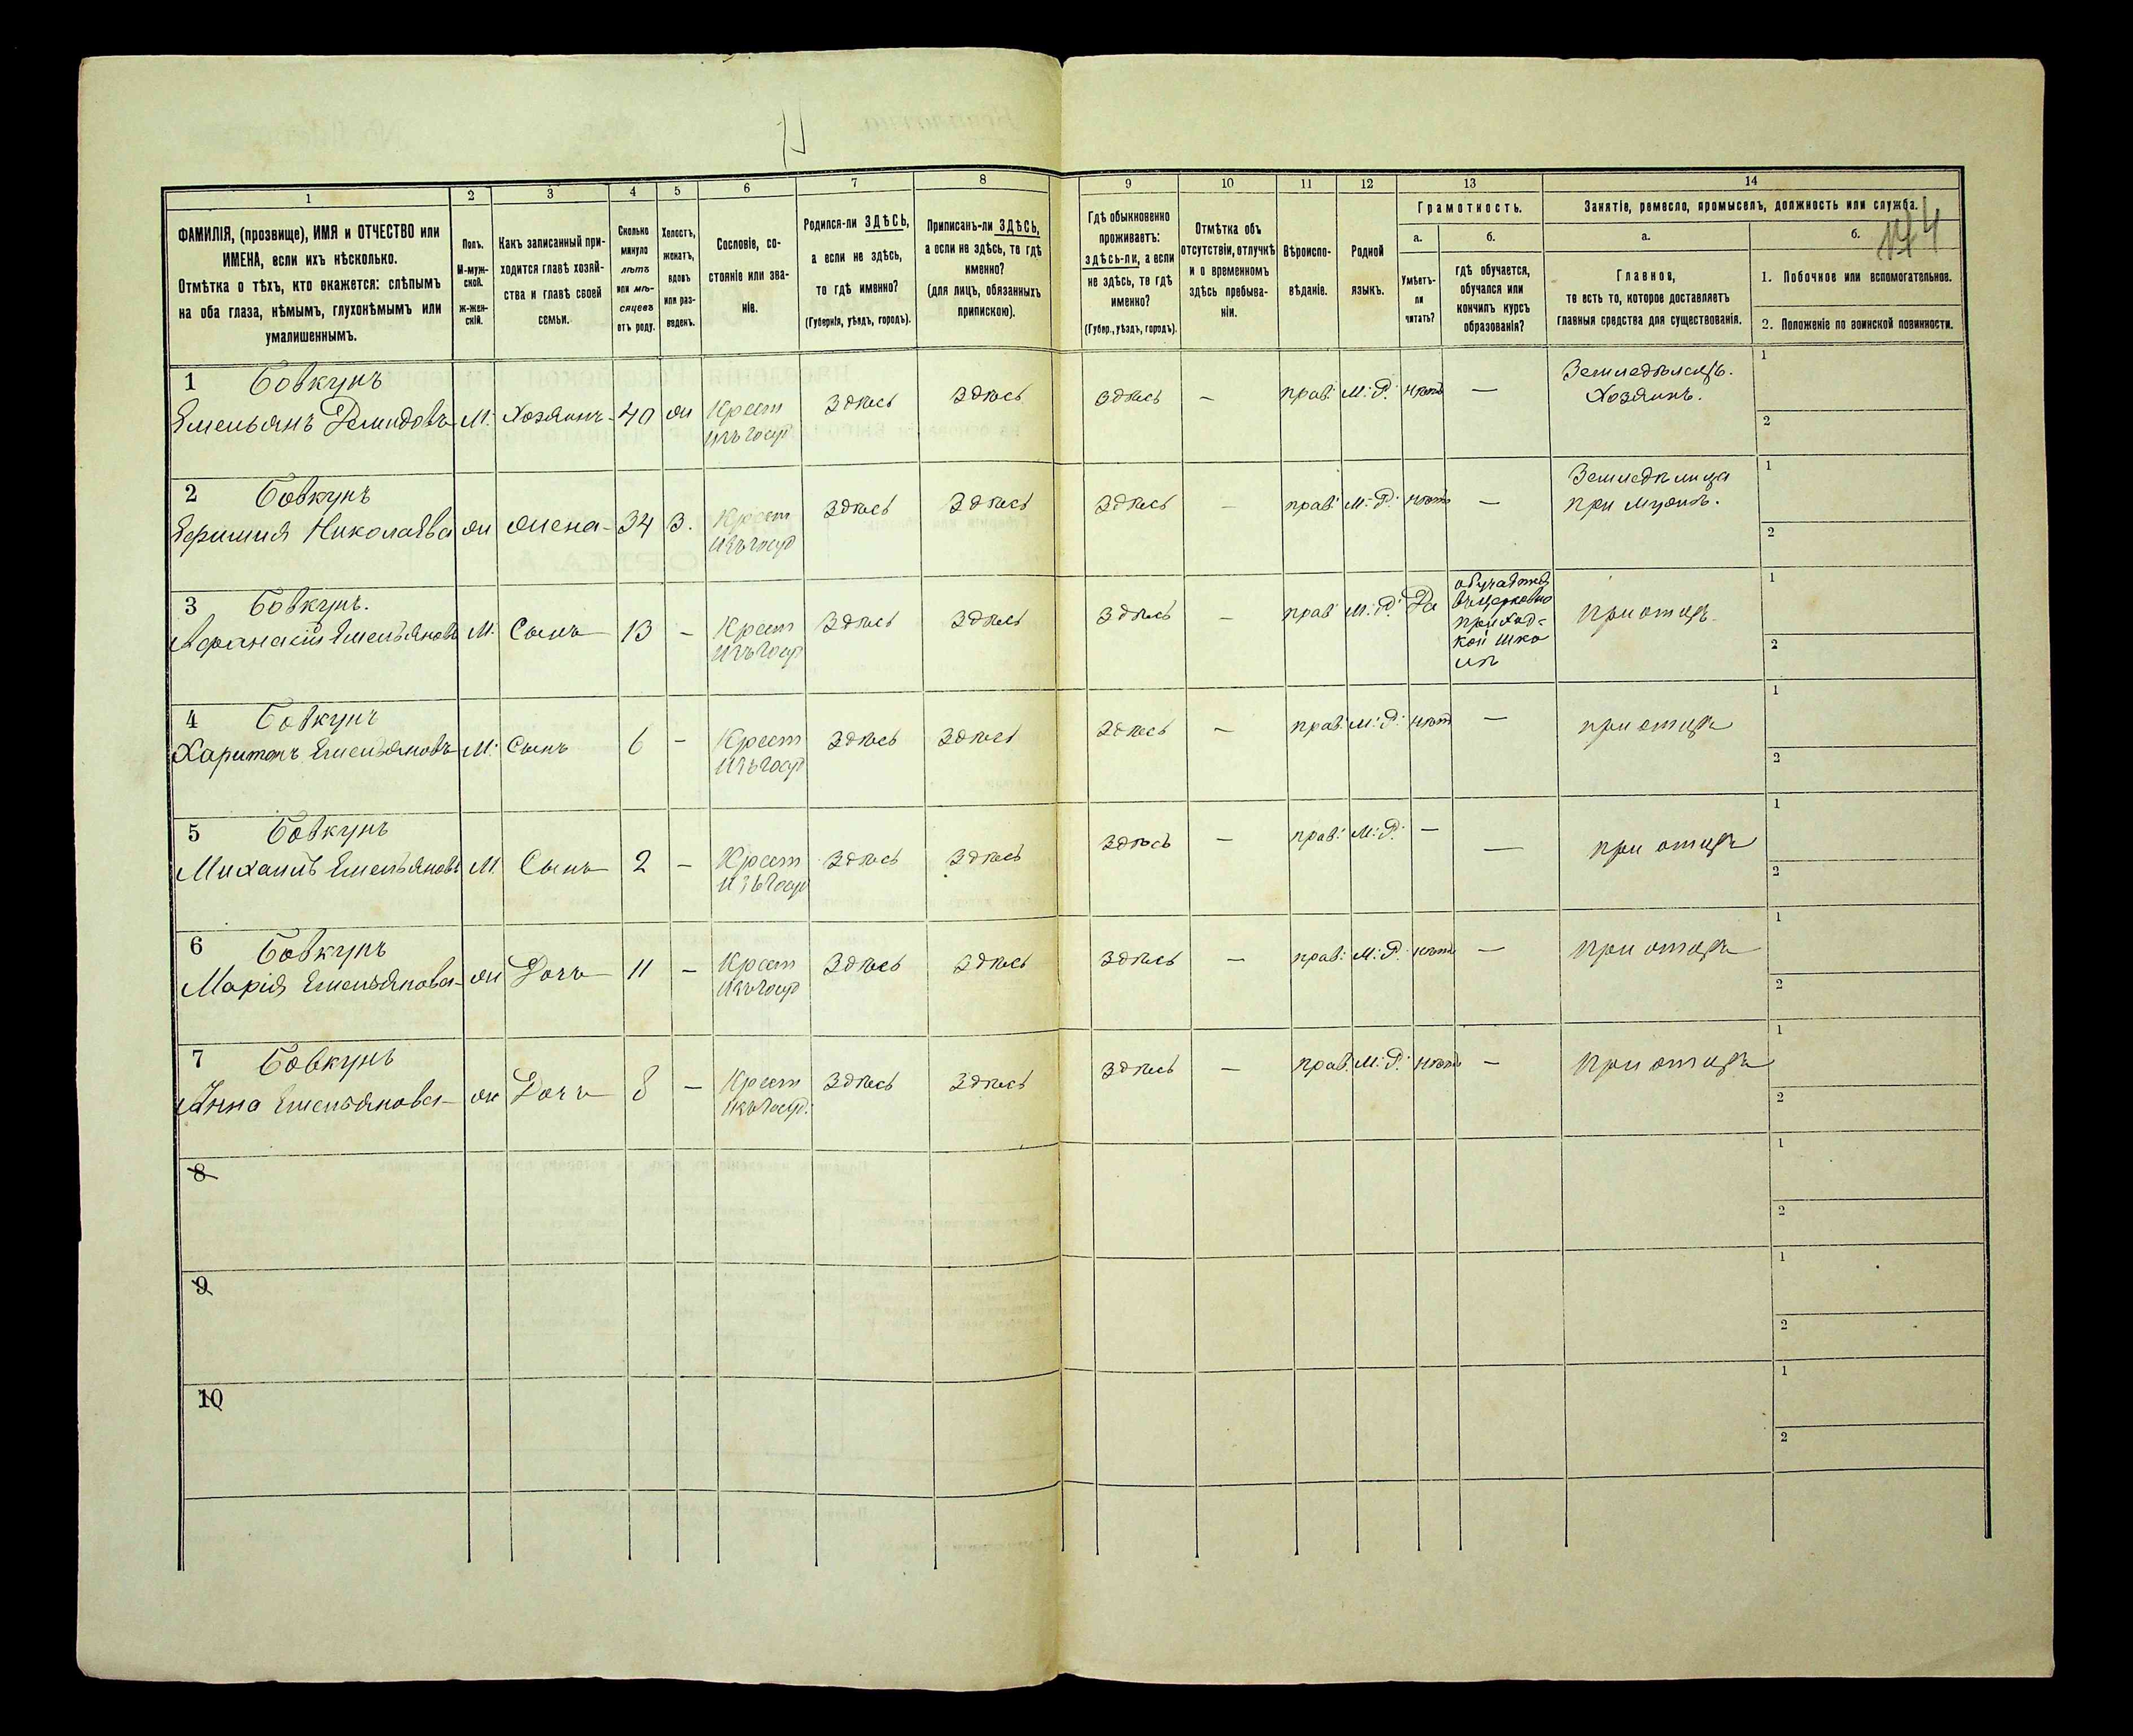 1 2 3 4 5 6 7 8 9 10 11 12 13 14
ФАМИЛІЯ, (прозвище), ИМЯ и ОТЧЕСТВО или ИМЕНА, если ихъ нѣсколько.
Отмѣтка о тѣхъ, кто окажется: слѣпымъ на оба глаза, нѣмымъ, глухонѣмымъ или умалишеннымъ.
Полъ.
М-мужской.
ж-женскій.
Какъ записанный приходится главѣ хозяйства и главѣ своей семьи.
Сколько минуло лѣтъ или мѣсяцевъ отъ роду.
Холостъ, женатъ, вдовъ или разведенъ.
Сословіе, состояніе или званіе.
Родился-ли ЗДѢСЬ, а если не здѣсь, то гдѣ именно?
(Губернія, уѣздъ, городъ).
Приписанъ-ли ЗДѢСЬ, а если не здѣсь, то гдѣ именно?
(для лицъ, обязанныхъ припискою).
Гдѣ обыкновенно проживаетъ: здѣсь-ли, а если не здѣсь, то гдѣ именно?
(Губер., уѣздъ, городъ).
Отмѣтка объ отсутствіи, отлучкѣ и о временномъ здѣсь пребываніи.
Вѣроисповѣданіе.
Родной языкъ.
Грамотность.
а.
Умѣетъ-ли читать?
б.
гдѣ обучается, обучался или кончилъ курсъ образованія?
Занятіе, ремесло, промыселъ, должность или служба.
а.
Главное,
то есть то, которое доставляетъ главныя средства для существованія.
б.
1. Побочное или вспомогательное.
2. Положеніе по воинской повинности.
1 Бовкунъ
Емельянъ Демидовъ М. Хозяинъ 40 ж Крест изъ госуд здѣсь здѣсь здѣсь - прав: М: Р: нѣтъ — Земледѣлецъ. Хозяинъ. 1 2
2 Бовкунъ
Николаева ж жена 34 З. Крест изъ госуд здѣсь здѣсь здѣсь - прав: М: Р: нѣтъ — при мужѣ. 1 2
3 Бовкунъ.
Афанасій Емельяновъ М. Сынъ 13 - Крест изъ госуд здѣсь здѣсь здѣсь - прав: М: Р: Да въ церковно приход-кой школѣ при отцѣ 1 2
4 Бовкунъ
Харитонъ Емельяновъ М: Сынъ 6 - Крест изъ госуд здѣсь здѣсь здѣсь - прав: М: Р: нѣтъ — при отцѣ 1 2
5 Бовкунъ
Михаилъ Емельяновъ М. Сынъ 2 - Крест изъ госуд здѣсь здѣсь здѣсь - прав: М: Р: — — при отцѣ 1 2
6 Бовкунъ
Марія Емельянова ж Дочь 11 - Крест изъ госуд здѣсь здѣсь здѣсь - прав: М: Р: нѣтъ — при отцѣ 1 2
7 Бовкунъ
Анна Емельянова ж Дочь 8 - Крест изъ госуд: здѣсь здѣсь здѣсь - прав: М: Р: нѣтъ — при отцѣ 1 2
8 1 2
9 1 2
10 1 2